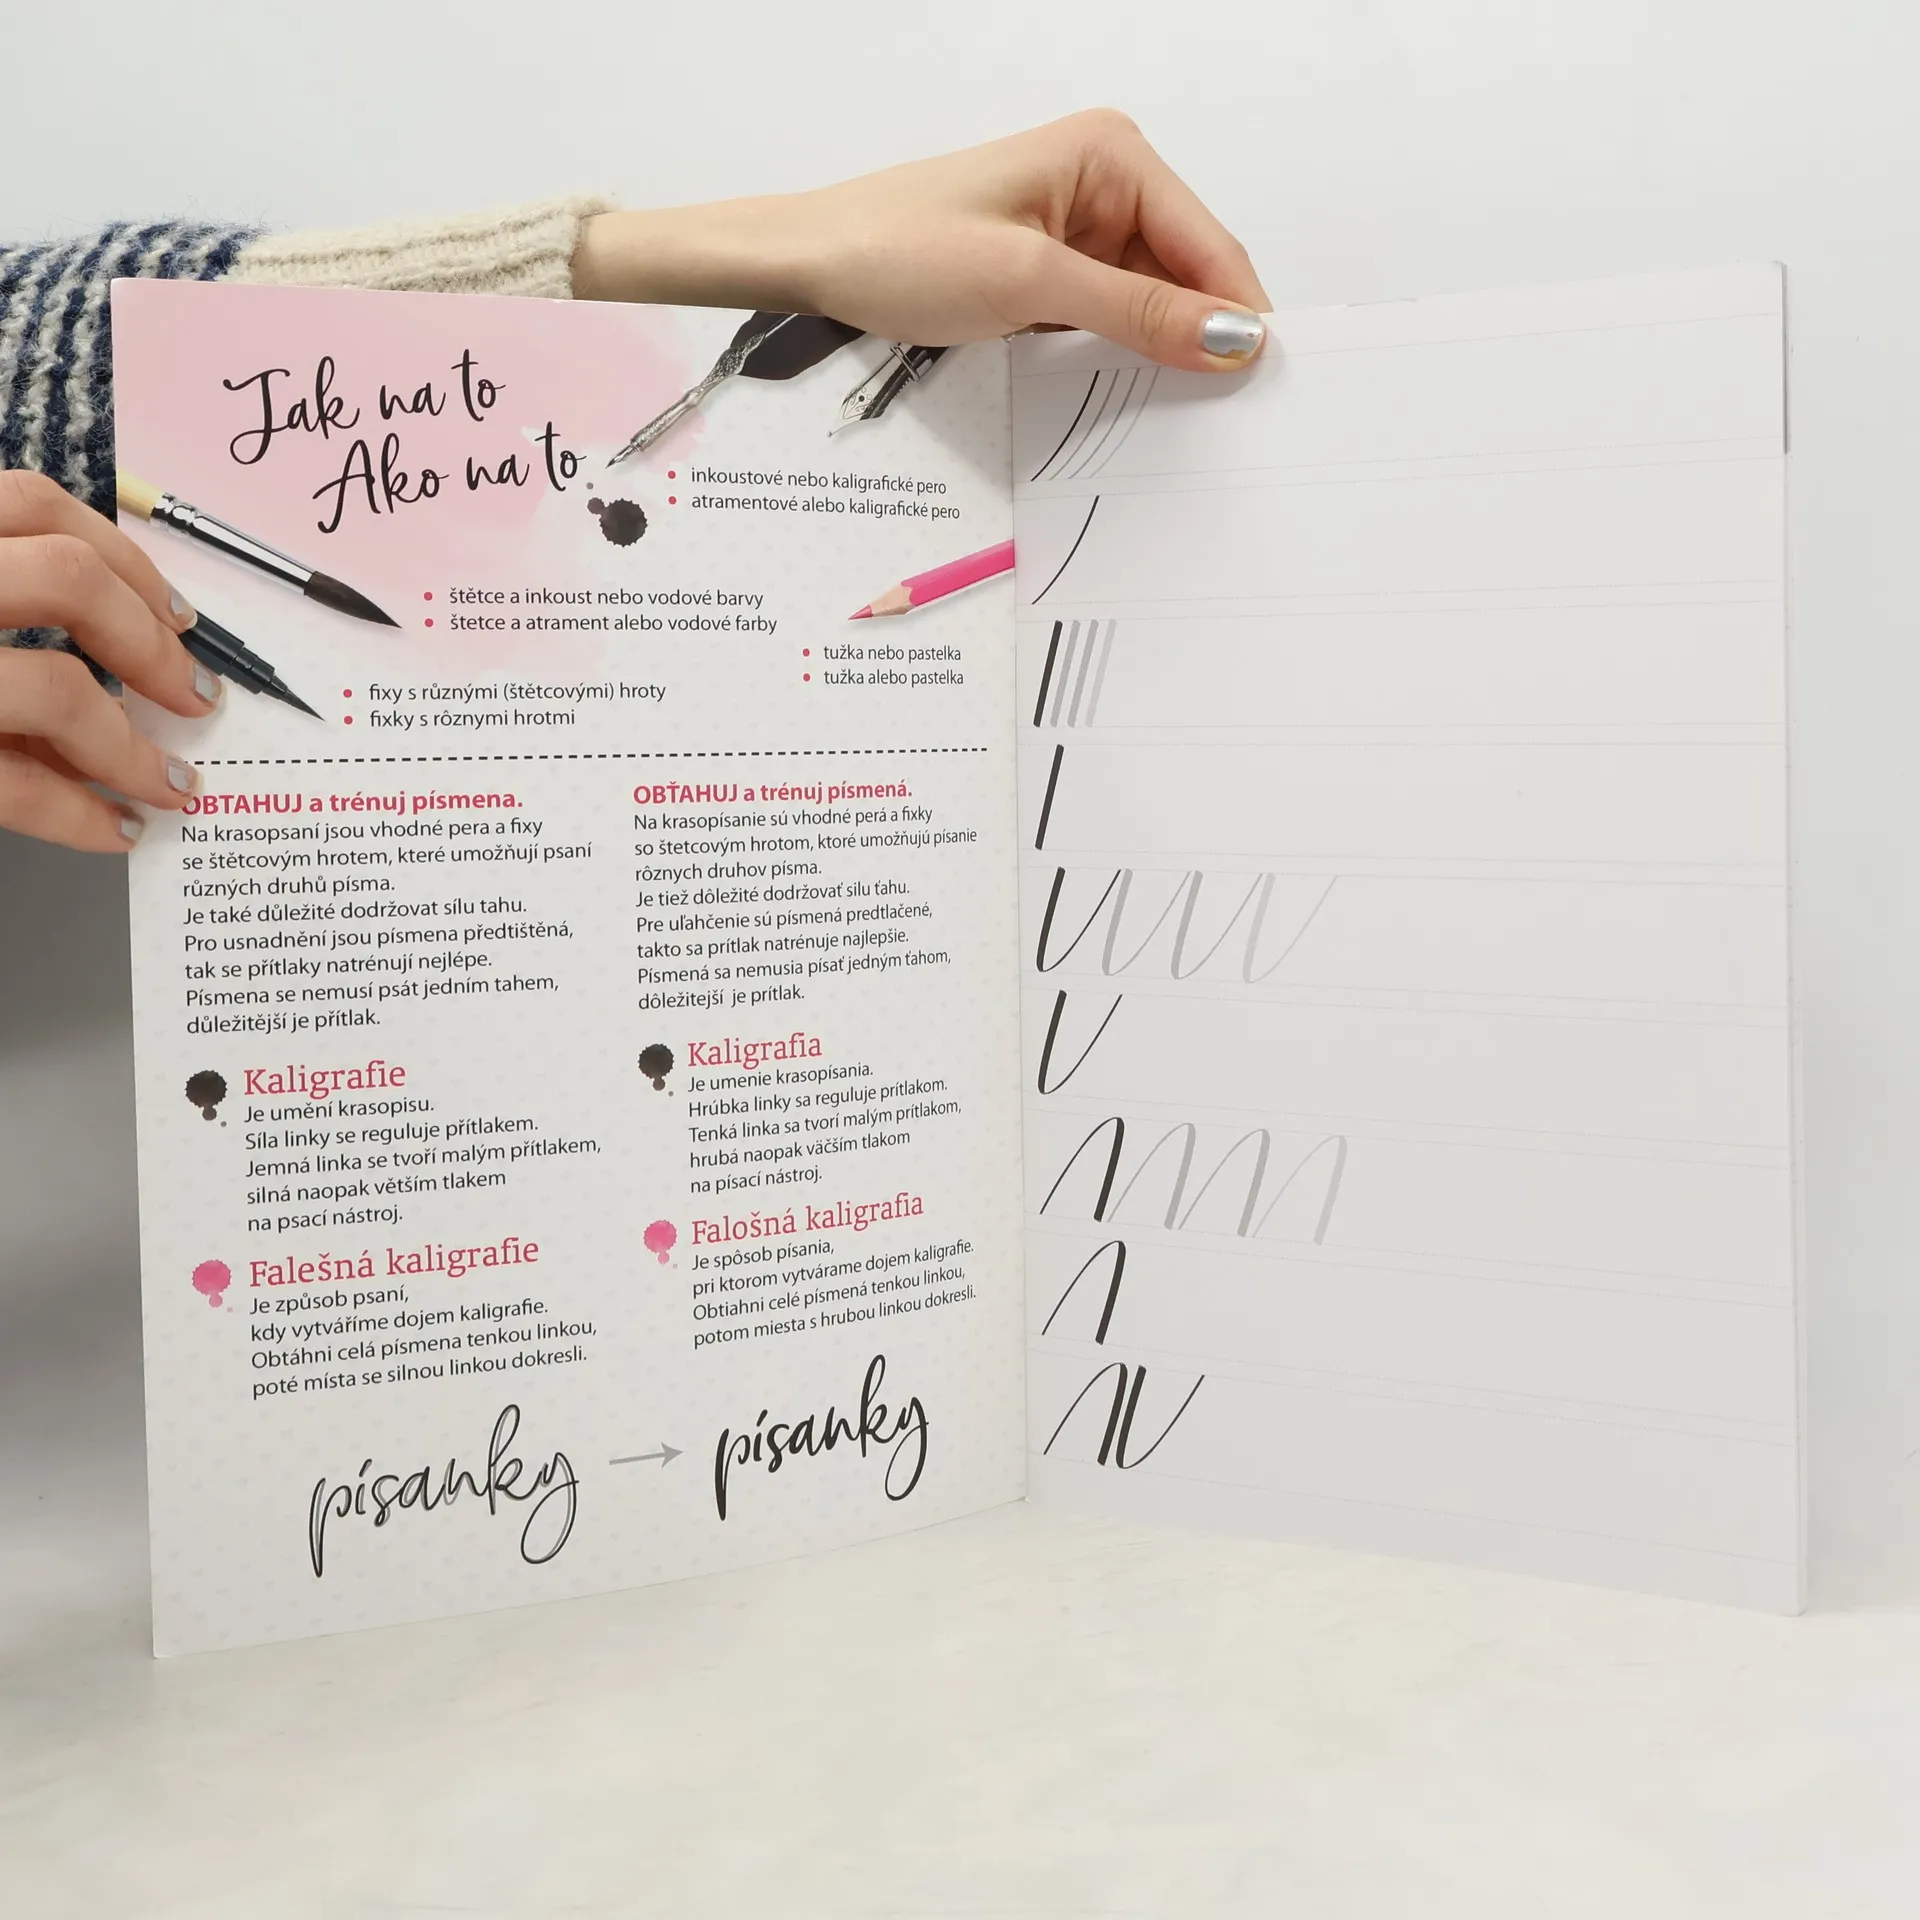 Jak na to
Ako na to
inkoustové nebo kaligrafické pero
atramentové alebo kaligrafické pero
štětce a inkoust nebo vodové barvy
štetce a atrament alebo vodové farby
tužka nebo pastelka
tužka alebo pastelka
fixy s různými (štětcovými) hroty
fixky s rôznymi hrotmi
OBTAHUJ a trénuj písmena.
Na krasopsaní jsou vhodné pera a fixy
se štětcovým hrotem, které umožňují psaní
různých druhů písma.
Je také důležité dodržovat sílu tahu.
Pro usnadnění jsou písmena předtištěná,
tak se přítlaky natrénují nejlépe.
Písmena se nemusí psát jedním tahem,
důležitější je přítlak.
Kaligrafie
Je umění krasopisu.
Síla linky se reguluje přítlakem.
Jemná linka se tvoří malým přítlakem,
silná naopak větším tlakem
na psací nástroj.
Falešná kaligrafie
Je způsob psaní,
kdy vytváříme dojem kaligrafie.
Obtáhni celá písmena tenkou linkou,
poté místa se silnou linkou dokresli.
OBŤAHUJ a trénuj písmená.
Na krasopísanie sú vhodné perá a fixky
so štetcovým hrotom, ktoré umožňujú písanie
rôznych druhov písma.
Je tiež dôležité dodržovať silu ťahu.
Pre uľahčenie sú písmená predtlačené,
takto sa prítlak natrénuje najlepšie.
Písmená sa nemusia písať jedným ťahom,
dôležitejší je prítlak.
Kaligrafia
Je umenie krasopísania.
Hrúbka linky sa reguluje prítlakom.
Tenká linka sa tvorí malým prítlakom,
hrubá naopak väčším tlakom
na písací nástroj.
Falošná kaligrafia
Je spôsob písania,
pri ktorom vytvárame dojem kaligrafie.
Obtiahni celé písmená tenkou linkou,
potom miesta s hrubou linkou dokresli.
písanky → písanky